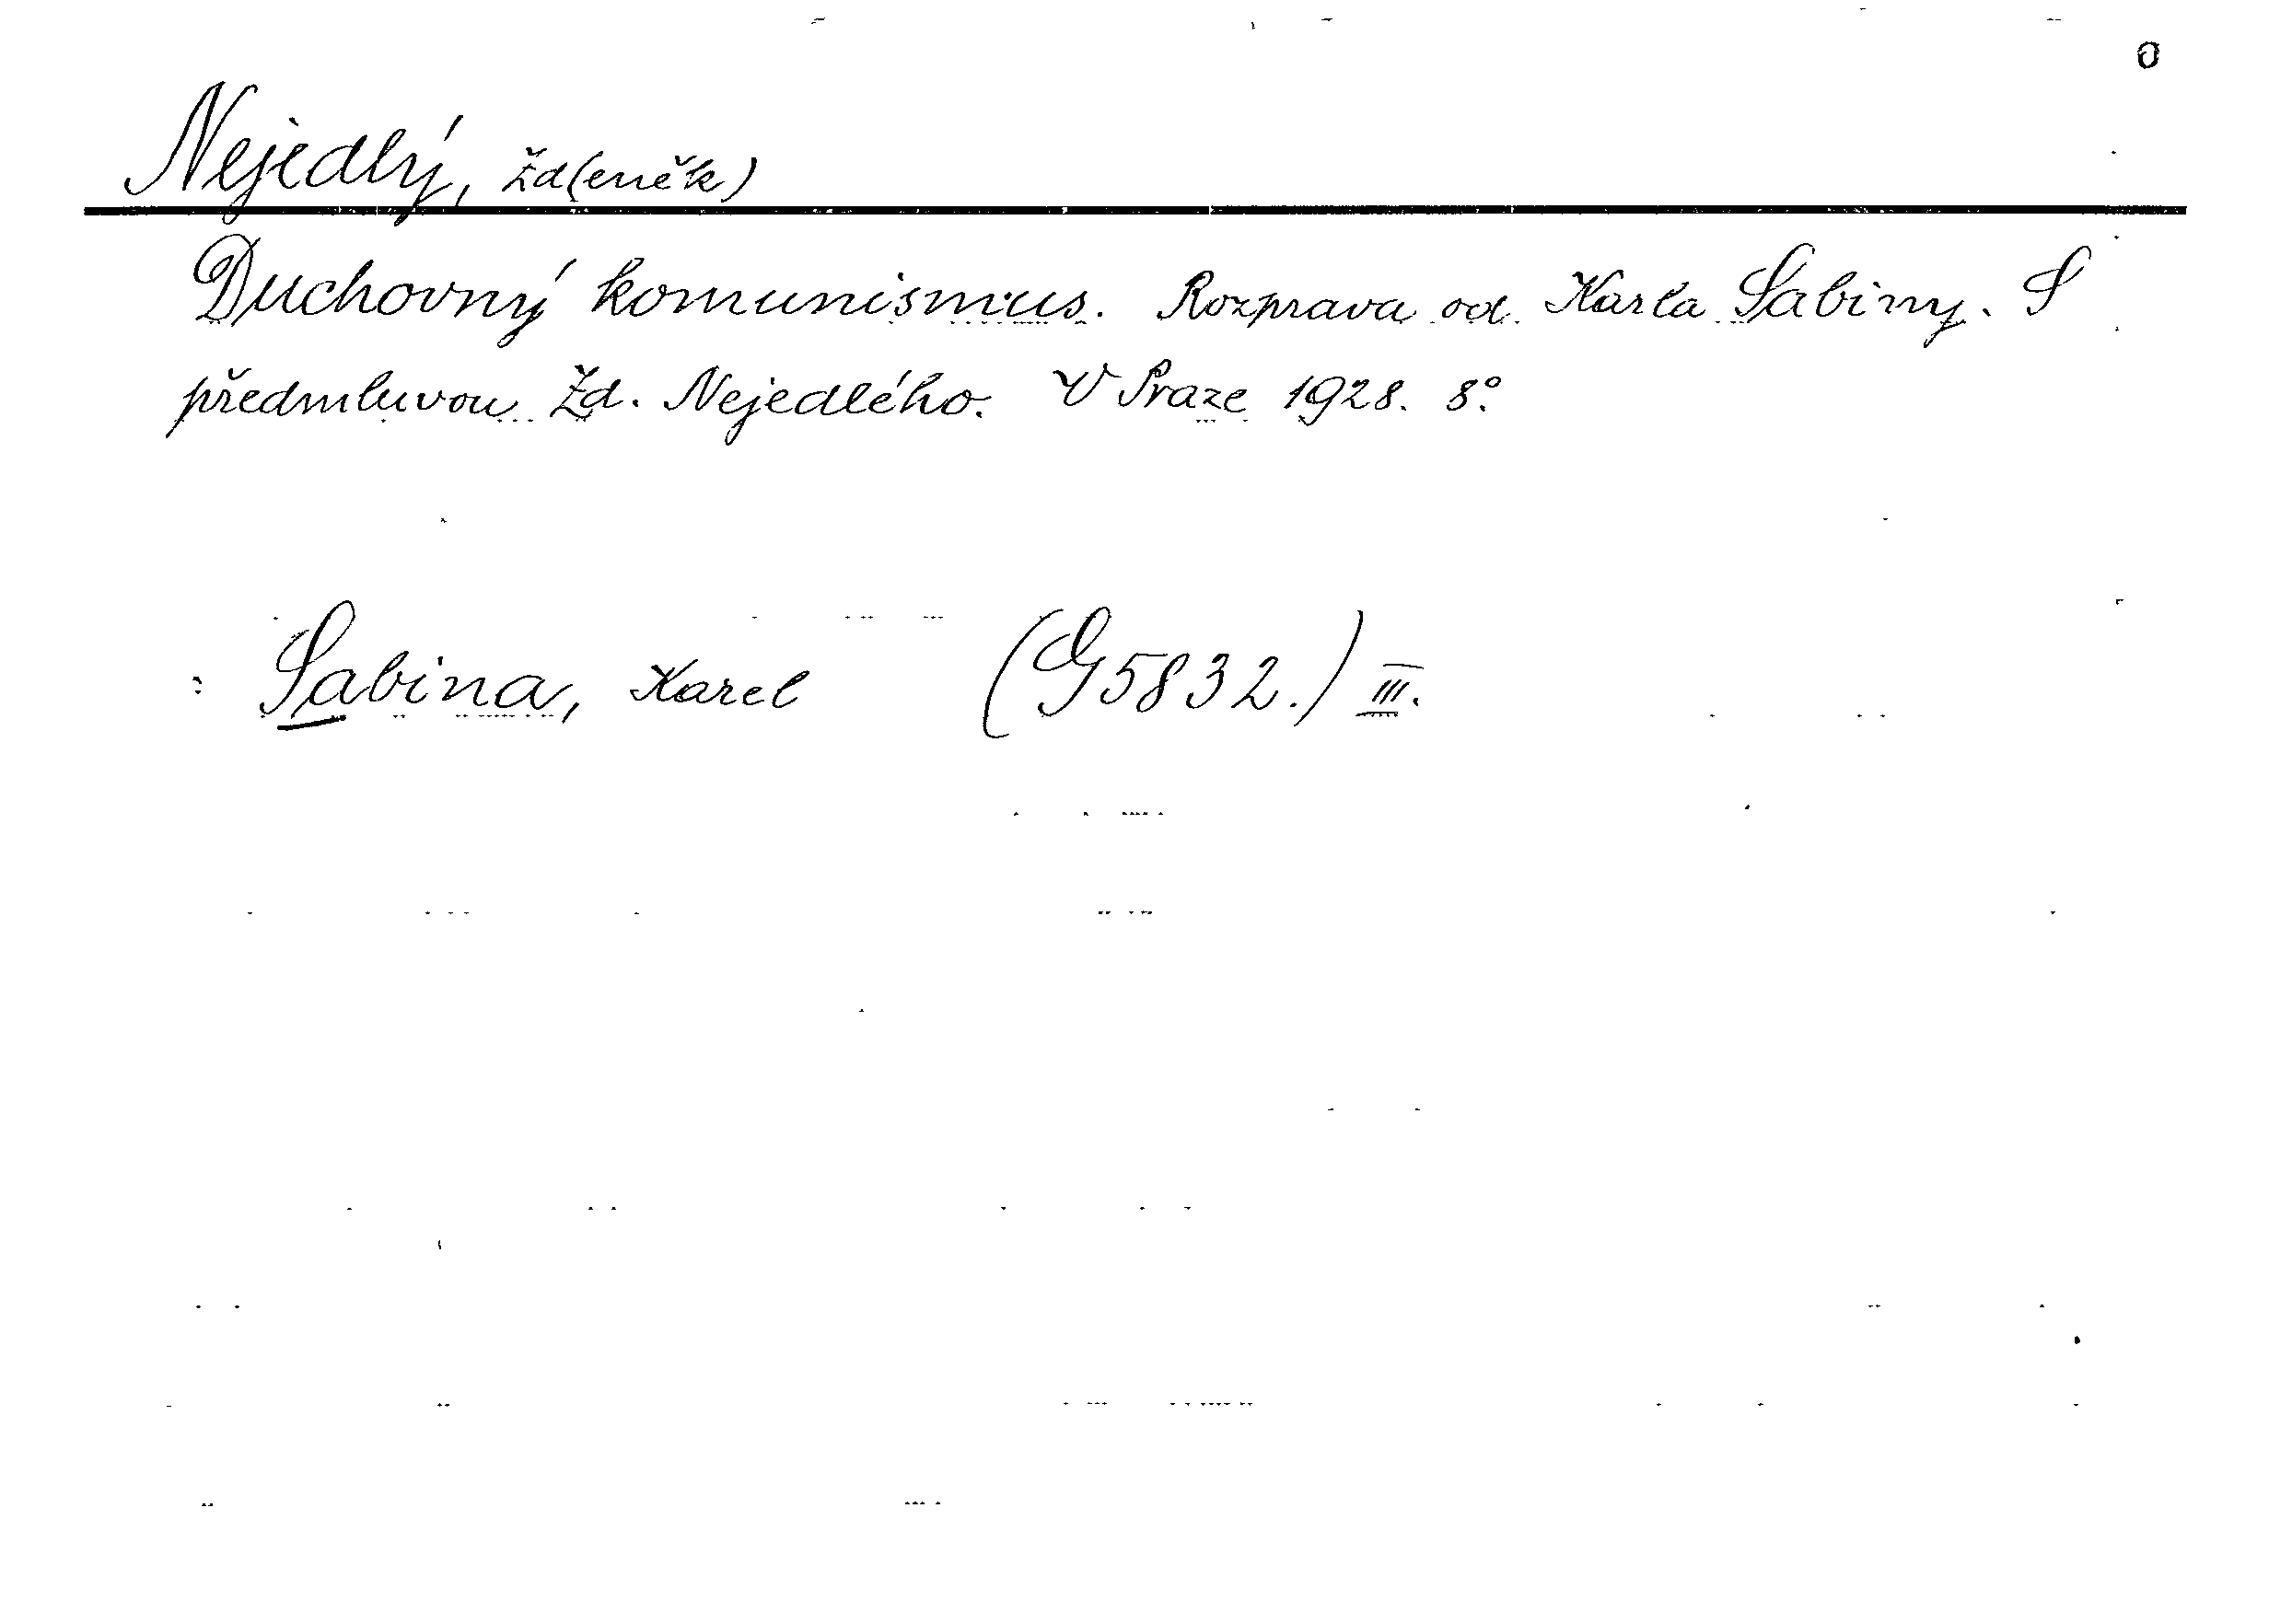 Nejedlý, Žd(eněk)
Duchovný komunismus. Rozprava od Karla Sabiny. S
předmluvou Žd. Nejedlého. V Praze 1928. 8°.
: Sabina, Karel (G5832.) III.